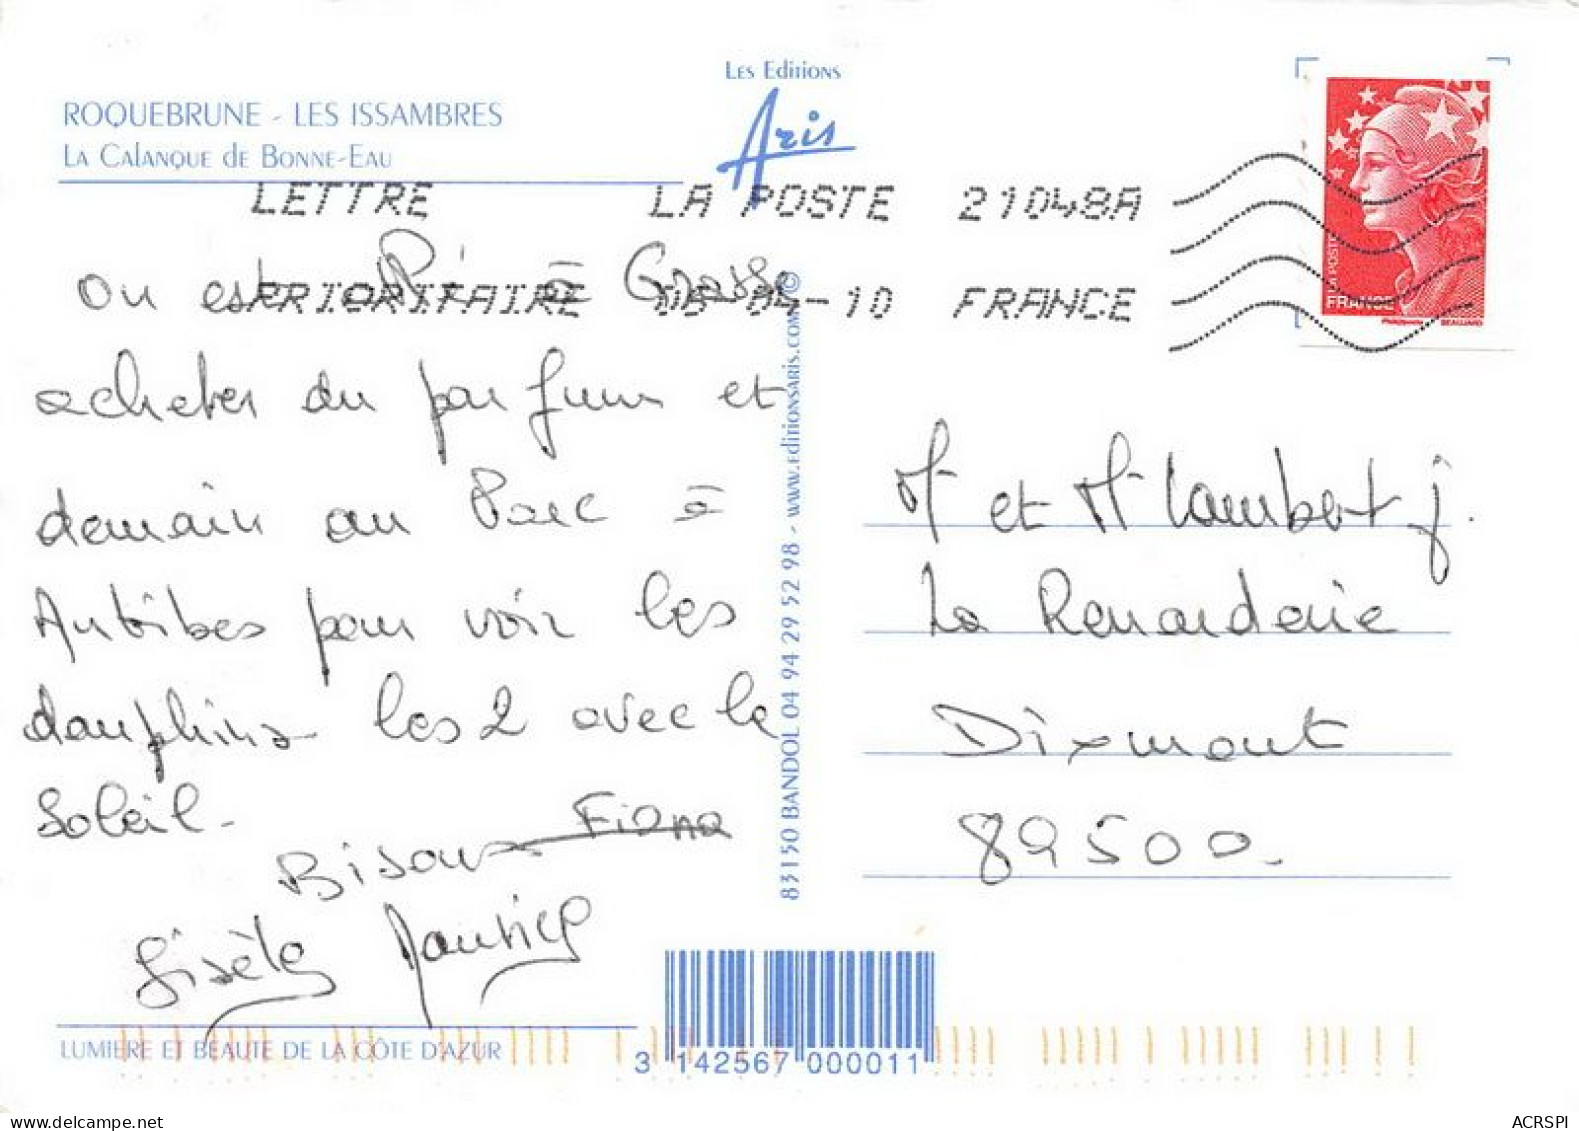 Les Editions
Aris
ROQUEBRUNE - LES ISSAMBRES
La Calanque de Bonne-Eau
LETTRE
PRIORITAIRE
LA POSTE 21048A
-10 FRANCE
FRANCE
On est à Grasse
acheter du parfum et
demain au Parc à
Antibes pour voir les
dauphins les 2 avec le
Soleil.
Bisous Fiona
Gisèle
83150 BANDOL 04 94 29 52 98 - www.editionsaris.com ©
M et M Lambert j.
La Renarderie
Dixmont
89500.
LUMIERE ET BEAUTE DE LA CÔTE D'AZUR
3 142567 000011
ACRSPI